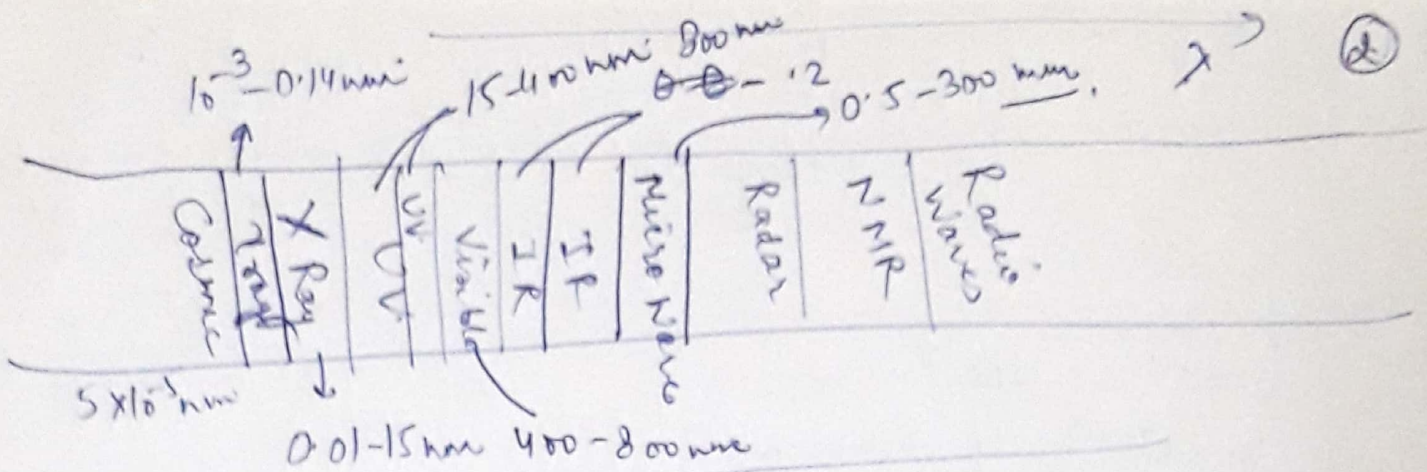 10⁻³-0.14nm
15-400nm
800nm
-.2
0.5-300 mm.
λ
2
Cosmic
γ rays
X Ray
UV
UV
Visible
IR
IR
Micro Wave
Radar
NMR
Radio Waves
5×10⁻³nm
0.01-15nm
400-800nm